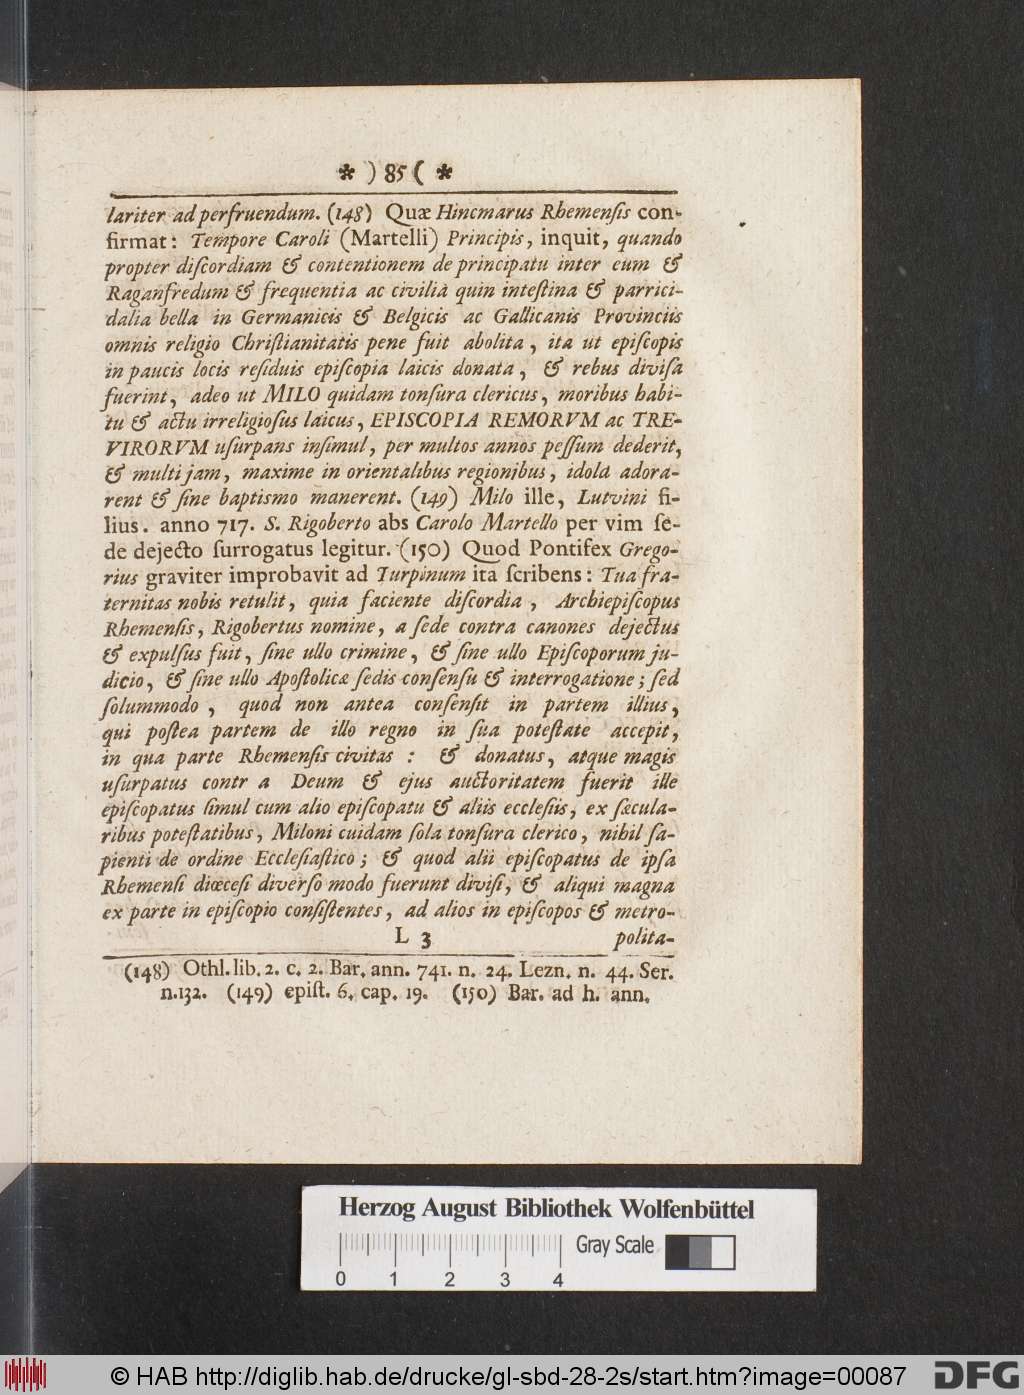 * ) 85 ( *
lariter ad perfruendum. (148) Quæ Hincmarus Rhemenſis con-
firmat: Tempore Caroli (Martelli) Principis, inquit, quando
propter diſcordiam & contentionem de principatu inter eum &
Raganfredum & frequentia ac civilia quin inteſtina & parrici-
dalia bella in Germanicis & Belgicis ac Gallicanis Provinciis
omnis religio Chriſtianitatis pene fuit abolita, ita ut epiſcopis
in paucis locis reſiduis epiſcopia laicis donata, & rebus diviſa
fuerint, adeo ut MILO quidam tonſura clericus, moribus habi-
tu & actu irreligioſus laicus, EPISCOPIA REMORVM ac TRE-
VIRORVM uſurpans inſimul, per multos annos peſſum dederit,
& multi jam, maxime in orientalibus regionibus, idola adora-
rent & ſine baptismo manerent. (149) Milo ille, Lutvini fi-
lius. anno 717. S. Rigoberto abs Carolo Martello per vim ſe-
de dejecto ſurrogatus legitur. (150) Quod Pontifex Grego-
rius graviter improbavit ad Turpinum ita ſcribens: Tua fra-
ternitas nobis retulit, quia faciente diſcordia, Archiepiſcopus
Rhemenſis, Rigobertus nomine, a ſede contra canones dejectus
& expulſus fuit, ſine ullo crimine, & ſine ullo Epiſcoporum ju-
dicio, & ſine ullo Apoſtolicæ ſedis conſenſu & interrogatione; ſed
ſolummodo, quod non antea conſenſit in partem illius,
qui poſtea partem de illo regno in ſua poteſtate accepit,
in qua parte Rhemenſis civitas: & donatus, atque magis
uſurpatus contr a Deum & ejus auctoritatem fuerit ille
epiſcopatus ſimul cum alio epiſcopatu & aliis eccleſiis, ex ſæcula-
ribus poteſtatibus, Miloni cuidam ſola tonſura clerico, nihil ſa-
pienti de ordine Eccleſiaſtico; & quod alii epiſcopatus de ipſa
Rhemenſi diœceſi diverſo modo fuerunt diviſi, & aliqui magna
ex parte in epiſcopio conſiſtentes, ad alios in epiſcopos & metro-
L 3 polita-
(148) Othl. lib. 2. c. 2. Bar. ann. 741. n. 24. Lezn. n. 44. Ser.
n.132. (149) epiſt. 6. cap. 19. (150) Bar. ad h. ann.
Herzog August Bibliothek Wolfenbüttel
Gray Scale
0 1 2 3 4
© HAB http://diglib.hab.de/drucke/gl-sbd-28-2s/start.htm?image=00087
DFG